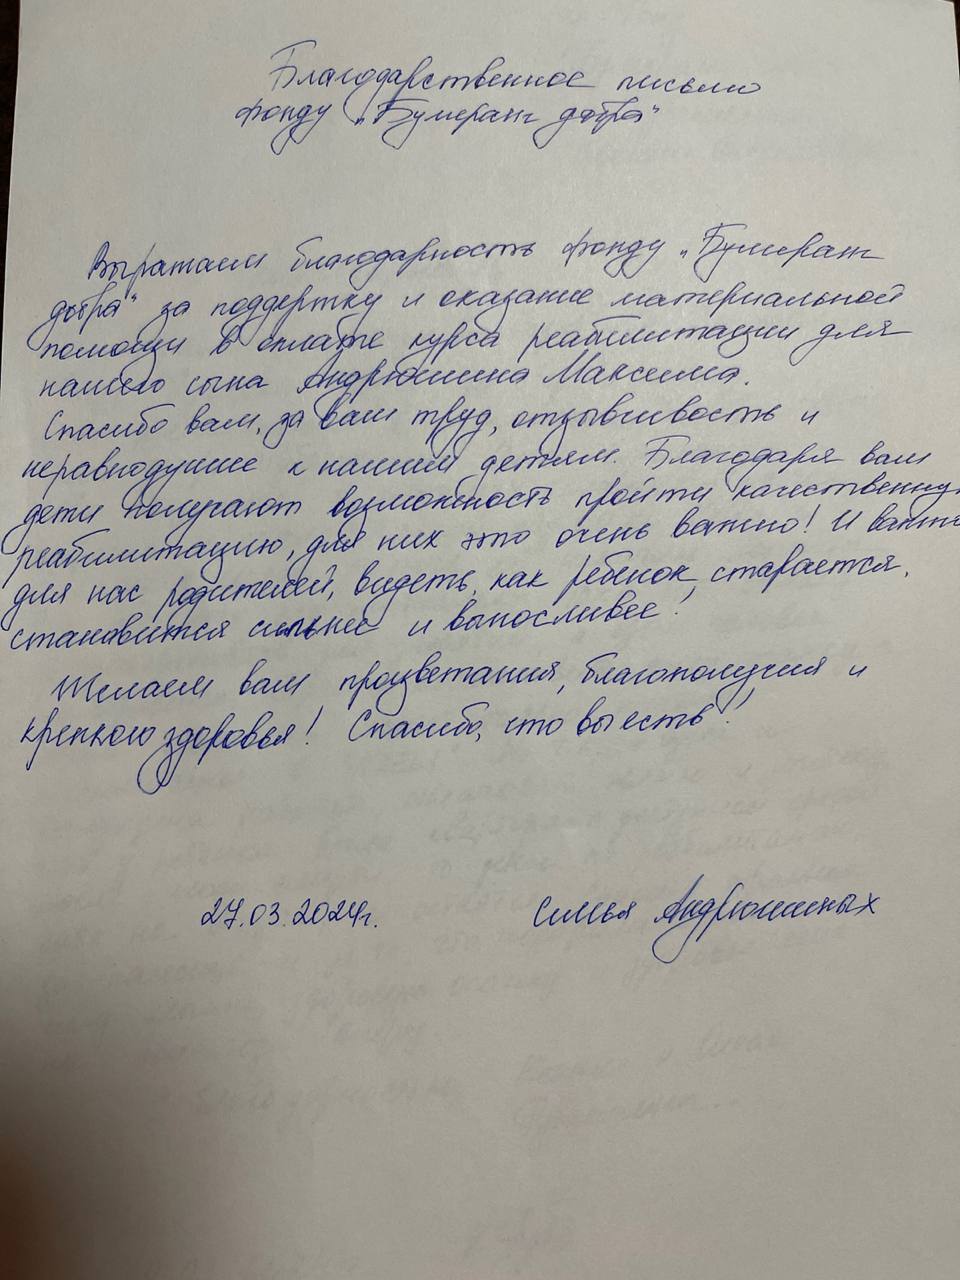 Благодарственное письмо
фонду „Бумеранг добра"
Выражаем благодарность фонду „Бумеранг
добра" за поддержку и оказание материальной
помощи в оплате курса реабилитации для
нашего сына Андрюшина Максима.
Спасибо вам, за ваш труд, отзывчивость и
неравнодушие к нашим детям. Благодаря вам
дети получают возможность пройти качественную
реабилитацию, для них это очень важно! И важно
для нас родителей, видеть, как ребенок, старается,
становится сильнее и выносливее!
Желаем вам процветания, благополучия и
крепкого здоровья! Спасибо, что вы есть!
27.03.2024г.
Семья Андрюшиных